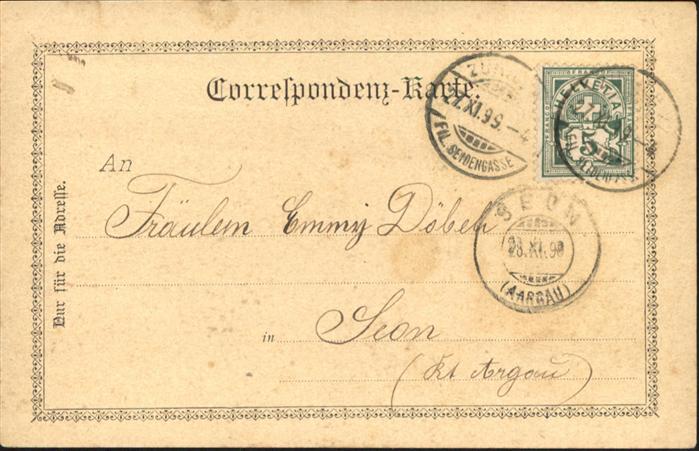 Correspondenz-Karte.
ZÜRICH
27.XI.99.-4
FIL. SEIDENGASSE
HELVETIA
FRANCO
5
An
Fräulein Emmy Döbeli
SEON
28.XI.99
(AARGAU)
in Seon
(Kt Argau)
Nur für die Adresse.